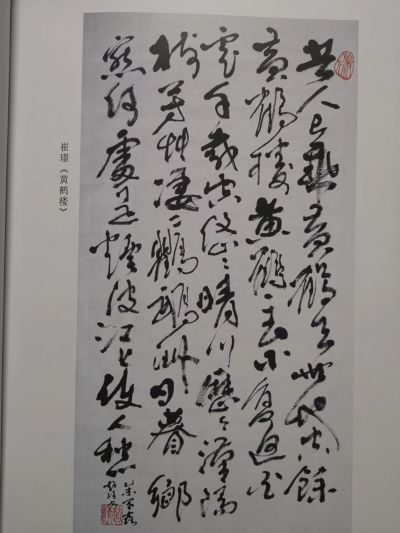 昔人已乘黃鶴去此地空餘
黃鶴樓黃鶴一去不復返白
雲千載空悠〻晴川歷〻漢陽
樹芳艸凄〻鸚鵡洲日暮鄉
關何處是煙波江上使人愁
崔《黄鹤楼》